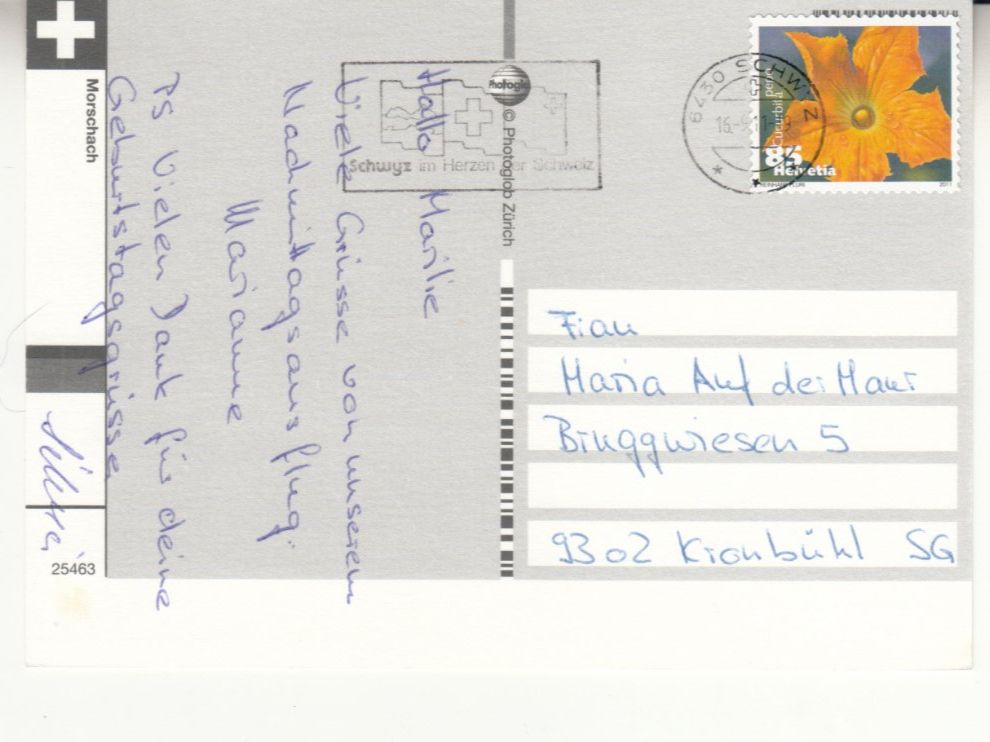 Morschach
25463
Photoglob
© Photoglob Zürich
Schwyz im Herzen der Schweiz
6430 SCHWYZ
Cucurbita pepo
85
Helvetia
2011
Hallo Marilie
Viele Grüsse von unserem
Nachmittagsausflug.
Marianne
PS Vielen Dank für deine
Geburtstagsgrüsse
Frau
Maria Auf der Maur
Bruggwiesen 5
9302 Kronbühl SG